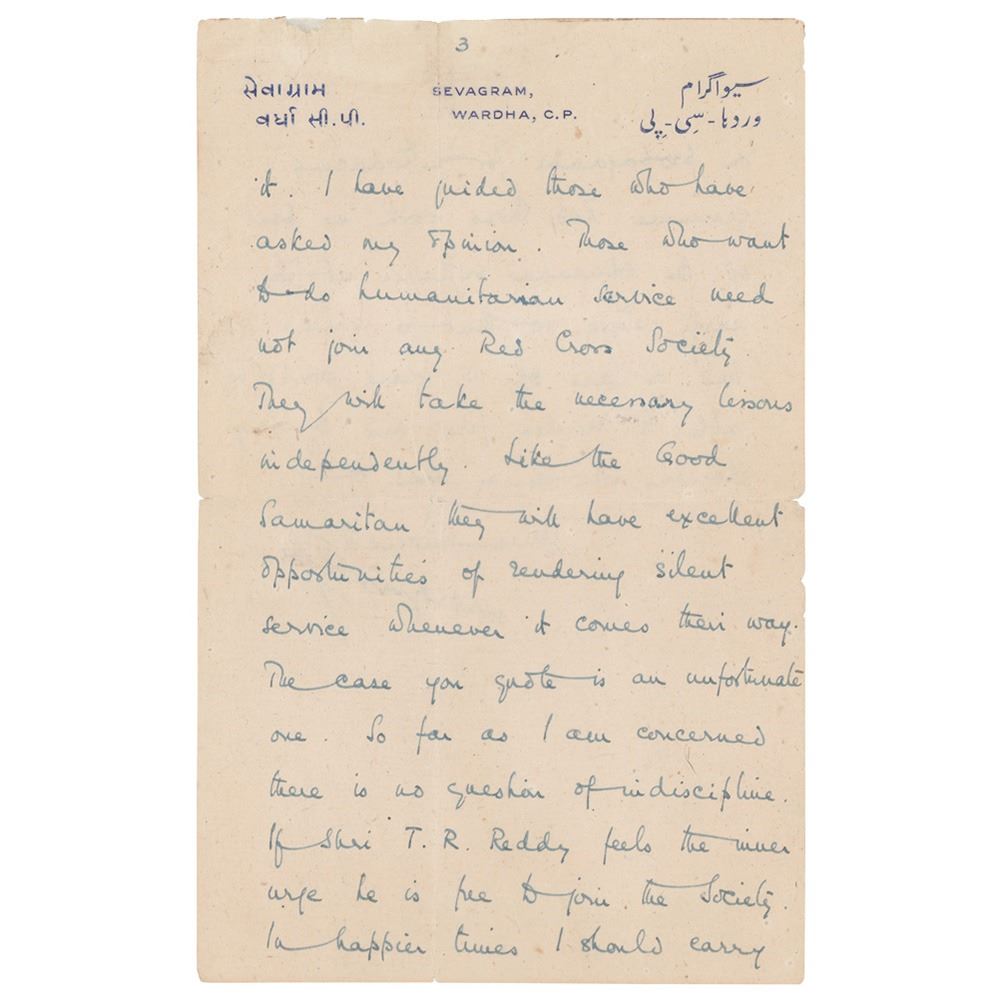 3
સેવાગ્રામ SEVAGRAM, سیواگرام
વર્ધા સી.પી. WARDHA, C.P. وردہا - سِی - پِی
it. I have guided those who have
asked my opinion. Those who want
to do humanitarian service need
not join any Red Cross Society.
They will take the necessary lessons
independently. Like the Good
Samaritan they will have excellent
opportunities of rendering silent
service whenever it comes their way.
The case you quote is an unfortunate
one. So far as I am concerned
there is no question of indiscipline.
If Shri T. R. Reddy feels the inner
urge he is free to join the Society.
In happier times I should carry